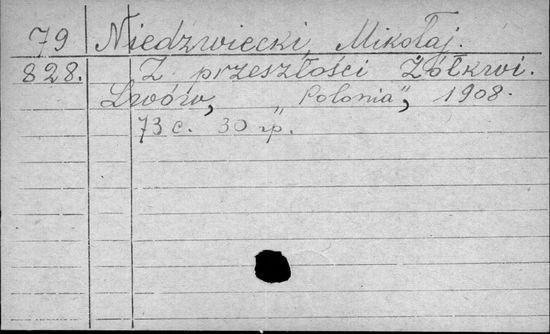 79 Niedźwiecki, Mikołaj.
828. Z przeszłości Żółkwi.
Lwów, „Polonia”, 1908.
73 с. 30 гр.